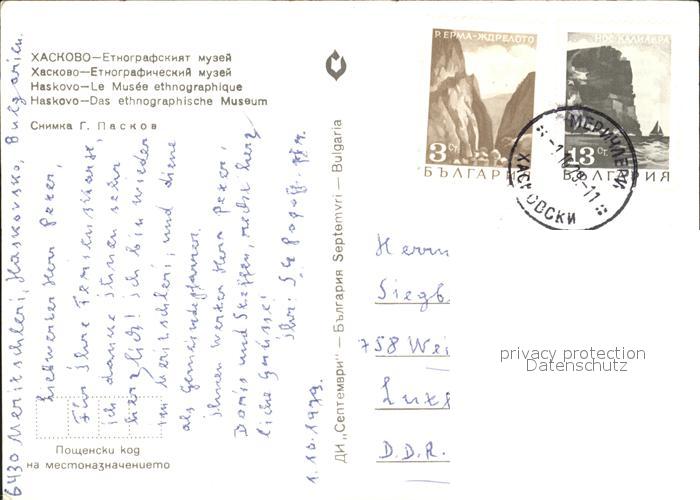 ХАСКОВО—Етнографският музей
Хасково—Етнографический музей
Haskovo—Le Musée ethnographique
Haskovo—Das ethnographische Museum
Снимка Г. Пасков
6430 Meritschleri, Haskovsko, Bulgarien.
Liebwerter Herr Peker,
Für Ihre
ich danke Ihnen sehr
herzlich! Ich bin wieder
in Meritschleri, und diene
als Gemeindepfarrer.
Ihnen werter Herr Peker,
Doris und Steffen, recht herz
liche Grüsse!
Ihr:
1.10.1979.
Пощенски код
на местоназначението
ДИ „Септември" — България Septemvri — Bulgaria
Р. ЕРМА-ЖДРЕЛОТО
3 Ст.
БЪЛГАРИЯ
НОС КАЛИАКРА
13 Ст.
БЪЛГАРИЯ
МЕРИЧЛЕРИ
ХАСКОВСКИ
Herrn
Siegb.
758 Wei
Luxe
D.D.R.
privacy protection
Datenschutz